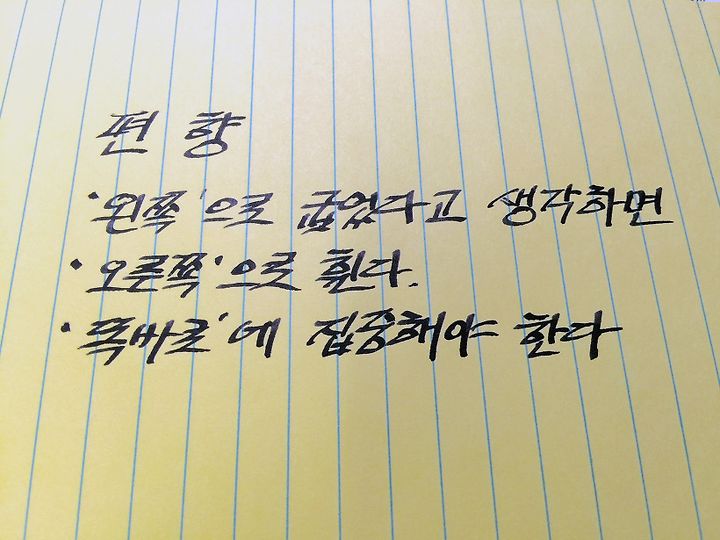 편 향
'왼쪽'으로 굽었다고 생각하면
'오른쪽'으로 휜다.
'똑바로'에 집중해야 한다